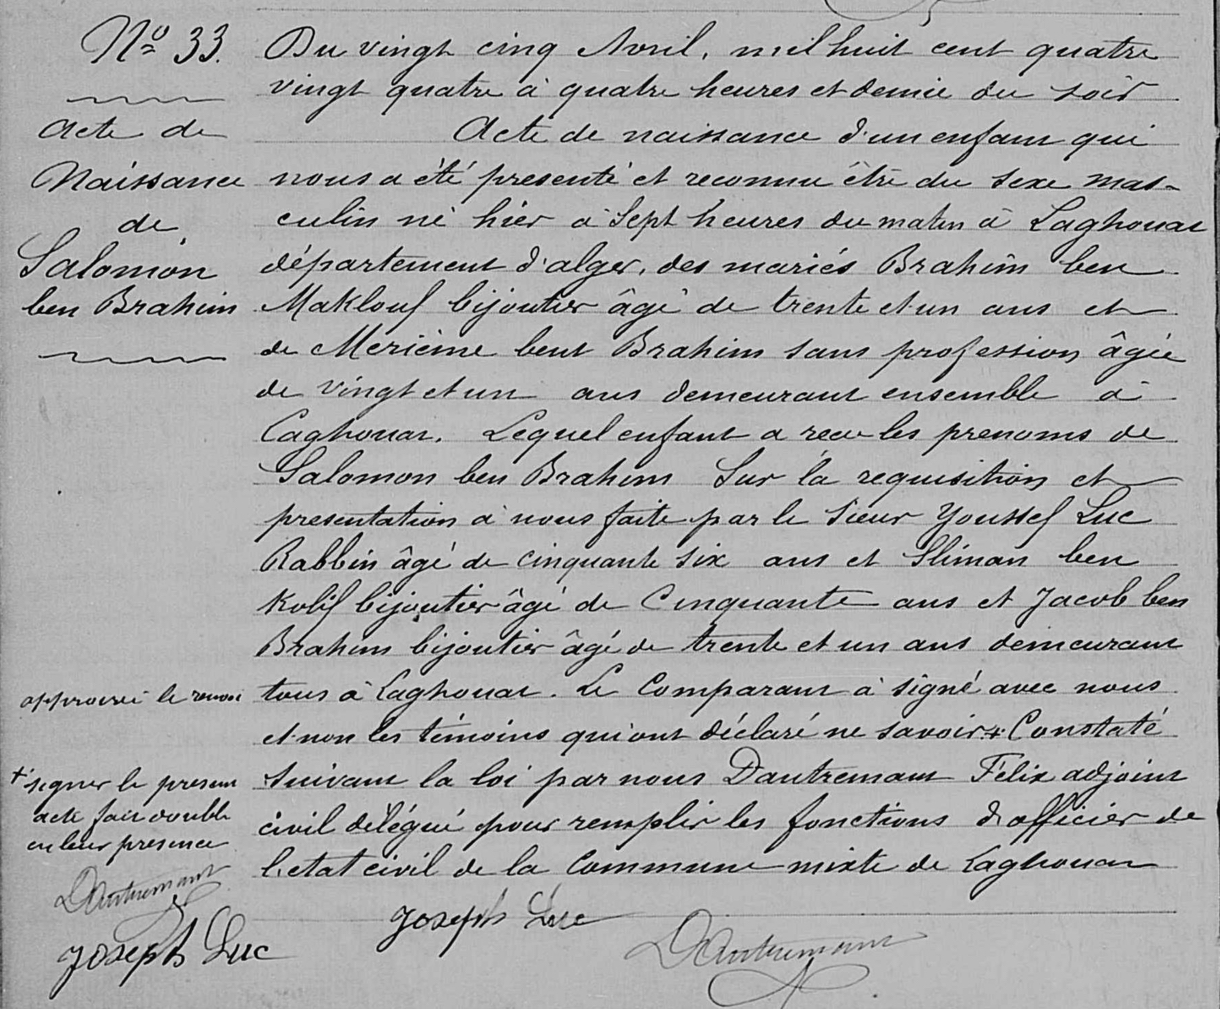 Nº 33.
Acte de
Naissance
de
Salomon
ben Brahim
Du vingt cinq Avril, mil huit cent quatre
vingt quatre à quatre heures et demie du soir
Acte de naissance d'un enfant qui
nous a été presenté et reconnu être du sexe mas-
culin né hier à Sept heures du matin à Laghouat
département d'alger, des mariés Brahim ben
Maklouf bijoutier âgé de trente et un ans et
de Merième bent Brahim sans profession âgée
de vingt et un ans demeurant ensemble à
Laghouat. Lequel enfant a reçu les prenoms de
Salomon ben Brahim Sur la requisition et
presentation à nous faite par le Sieur Youssef Luc
Rabbin âgé de cinquante six ans et Sliman ben
bijoutier âgé de Cinquante ans et Jacob ben
Brahim bijoutier âgé de trente et un ans demeurant
tous à Laghouat. Le Comparant à signé avec nous
et non les témoins qui ont déclaré ne savoir + Constaté
suivant la loi par nous Dautremant Félix adjoint
civil délégué pour remplir les fonctions d'officier de
l'etat civil de la Commune mixte de Laghouat
approuvé le renvoi
+ signer le present
acte fait double
en leur presence
Dautremant
Joseph Luc
Joseph Luc
Dautremant